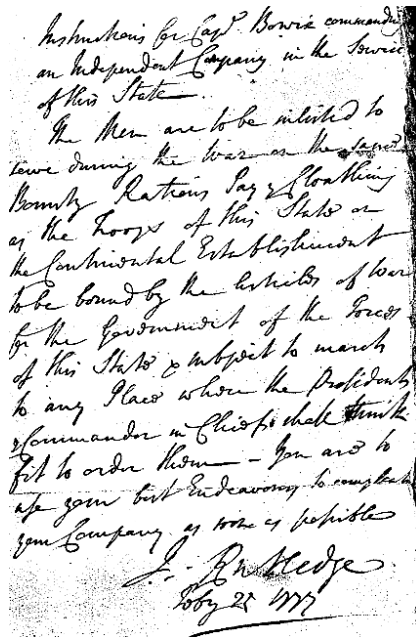 Instructions for Capt. Bowie commanding
an Independent Company in the Service
of this State
The Men are to be inlisted to
serve during the War on the same
Bounty Rations Pay & Cloathing
as the Troops of this State on
the Continental Establishment
to be bound by the Articles of War
for the Government of the Forces
of this State & subject to march
to any Place where the President
& Commander in Chief shall think
fit to order them – You are to
use your best Endeavours to compleat
your Company as soon as possible
J. Rutledge
Feby 25 1777